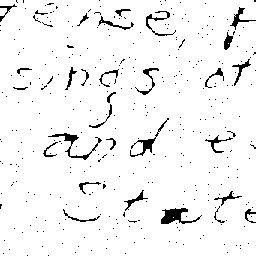 ense,
sings of
and e
State